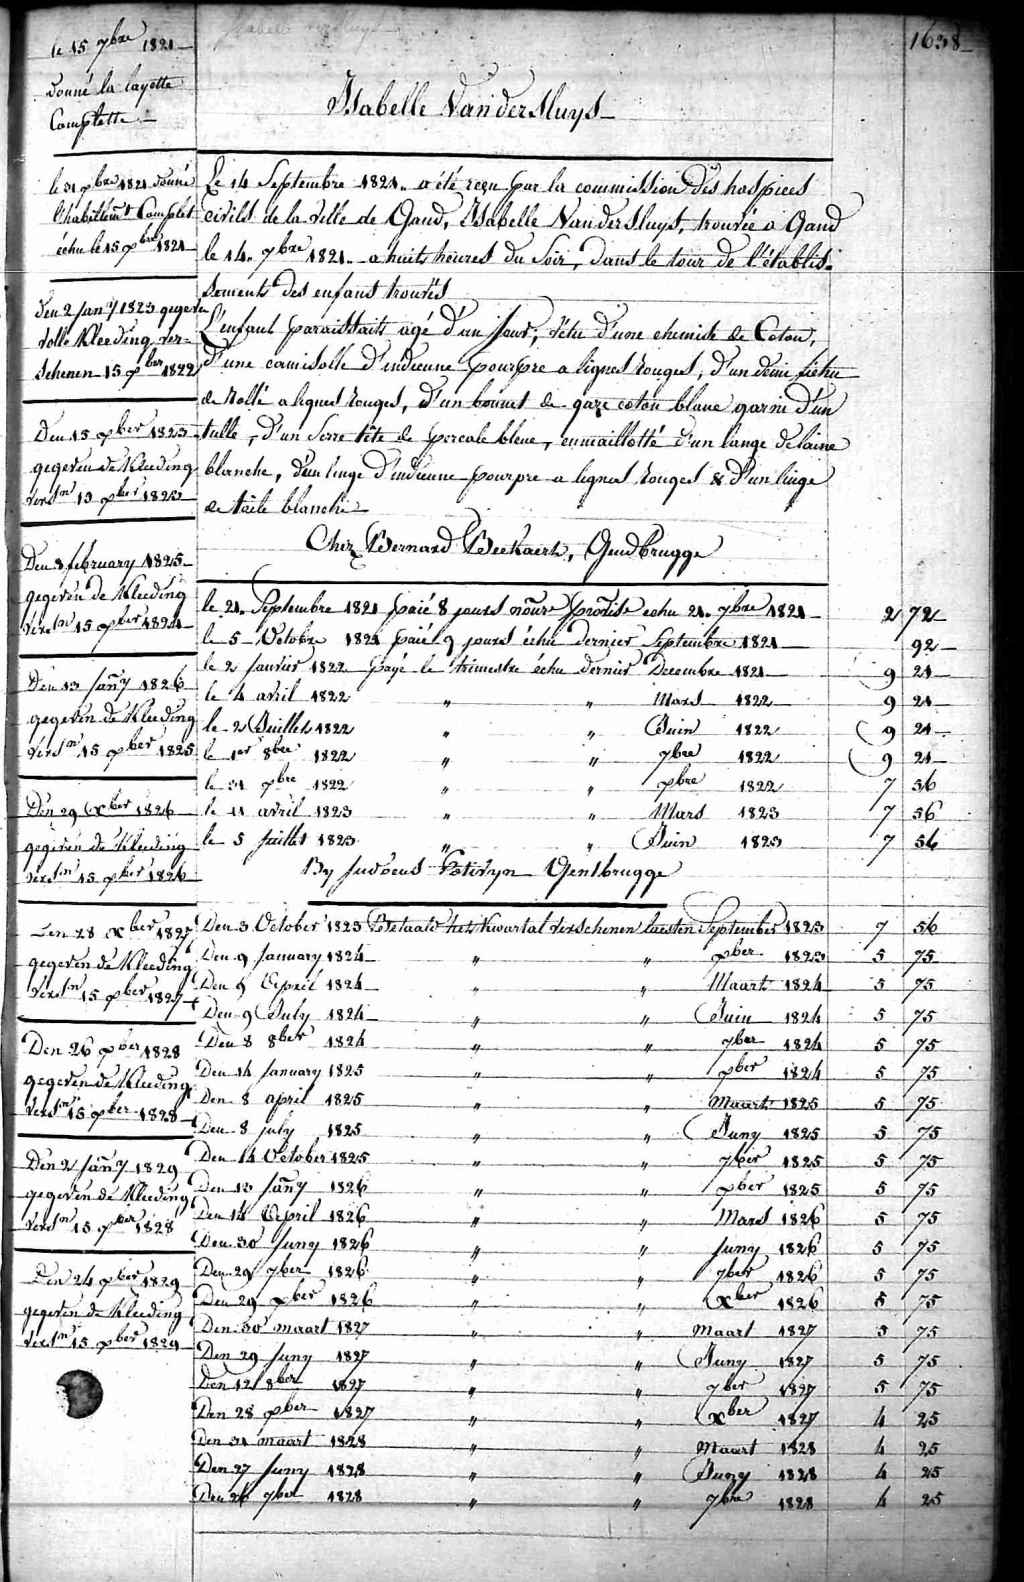 1638
le 15 7bre 1821
donné la layette
Complette
Isabelle VanderSluys
le 31 xbre 1821 donné
l'habillemt Complet
échu le 15 xbre 1821
Den 2 Jany 1823 gegeven
volle Kleeding ver-
schenen 15 xber 1822
Den 15 xber 1823
gegeven de Kleeding
versn 15 xber 1823
Den 3 february 1825
gegeven de Kleeding
versn 15 xber 1824
Den 13 Jany 1826
gegeven de Kleeding
versn 15 xber 1825
Den 29 xber 1826
gegeven de Kleeding
versn 15 xber 1826
Den 28 xber 1827
gegeven de Kleeding
versn 15 xber 1827
Den 26 xber 1828
gegeven de Kleeding
versn 15 xber 1828
Den 2 Jany 1829
gegeven de Kleeding
versn 15 xber 1828
Den 24 xber 1829
gegeven de Kleeding
versn 15 xber 1829
Le 14 Septembre 1821 a été reçu par la commission des hospices
civils de la ville de Gand, Isabelle VanderSluys, trouvée a Gand
le 14 7bre 1821 a huit heures du Soir, dans le tour de l'établis-
sements des enfans trouvés
L'enfant paraissait agé d'un Jour, vêtu d'une chemise de Coton,
d'une camisolle d'indienne pourpre a lignes rouges, d'un demi fichu
de a lignes rouges, d'un bonnet de gaze coton blanc garni d'un
tulle, d'un Serre tête de percale bleue, enmaillotté d'un lange de laine
blanche, d'un linge d'indienne pourpre a lignes rouges & d'un linge
de toile blanche
Chez Bernard Beekaert, Gendbrugge
le 21 Septembre 1821 paié 8 jours échu 21 7bre 1821 2 72
le 5 Octobre 1821 paié 9 jours échu dernier Septembre 1821 92
le 2 Janvier 1822 payé le trimestre échu dernier Decembre 1821 9 21
le 4 avril 1822 " " Mars 1822 9 21
le 2 Juillet 1822 " " Juin 1822 9 21
le 1er 8bre 1822 " " 7bre 1822 9 21
le 31 xbre 1822 " " xbre 1822 7 56
le 11 avril 1823 " " Mars 1823 7 56
le 5 Juillet 1823 " " Juin 1823 7 56
By Judocus Gentbrugge
Den 3 October 1823 Betaald het Kwartal verschenen laesten September 1823 7 56
Den 9 January 1824 " " xber 1823 5 75
Den 9 April 1824 " " Maart 1824 5 75
Den 9 July 1824 " " Juin 1824 5 75
Den 8 8ber 1824 " " 7ber 1824 5 75
Den 14 January 1825 " " xber 1824 5 75
Den 8 april 1825 " " Maart 1825 5 75
Den 8 july 1825 " " Juny 1825 5 75
Den 14 October 1825 " " 7ber 1825 5 75
Den 13 Jany 1826 " " xber 1825 5 75
Den 14 April 1826 " " Mars 1826 5 75
Den 30 Juny 1826 " " Juny 1826 5 75
Den 29 7ber 1826 " " 7ber 1826 5 75
Den 29 xber 1826 " " xber 1826 5 75
Den 30 maart 1827 " " Maart 1827 5 75
Den 29 Juny 1827 " " Juny 1827 5 75
Den 12 8ber 1827 " " 7ber 1827 5 75
Den 28 xber 1827 " " xber 1827 4 25
Den 31 maart 1828 " " Maart 1828 4 25
Den 27 Juny 1828 " " Juny 1828 4 25
Den 26 7ber 1828 " " 7bre 1828 4 25